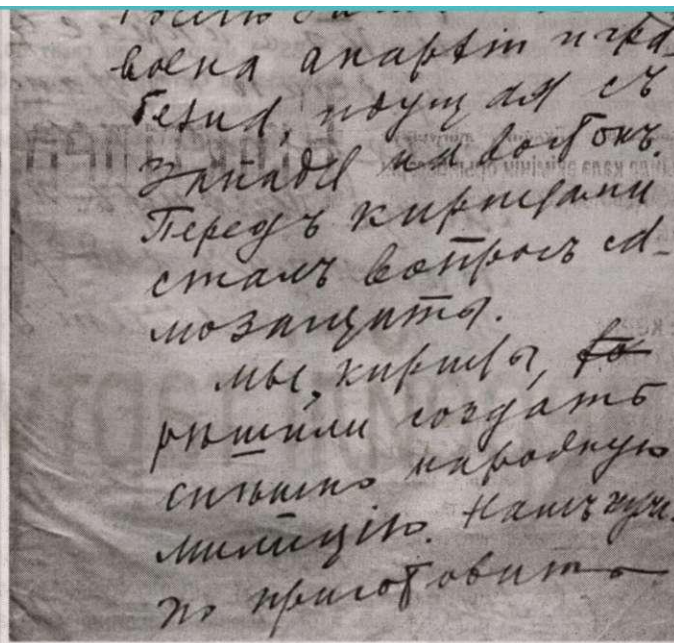 волна анархіи и гра-
бежа, идущая съ
Запада на востокъ.
Передъ киргизами
сталъ вопросъ са-
мозащиты.
Мы, киргизы,
рѣшили создать
спѣшно народную
милицію. Намъ нуж-
но приготовить